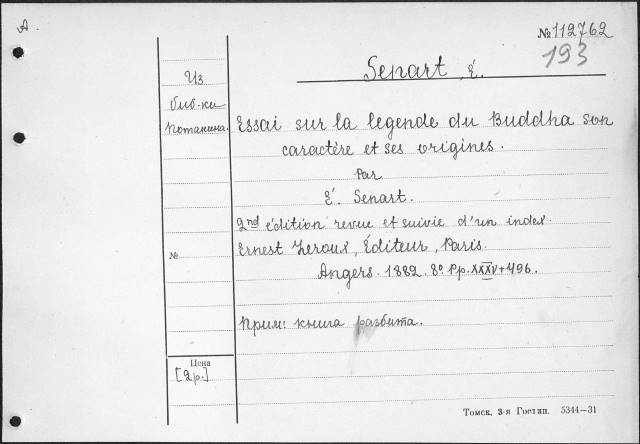 А.
№112762
193
Senart, É.
Из
биб-ки
Потанина.
Essai sur la legende du Buddha son
caractère et ses origines.
Par
É. Senart.
2nd édition revue et suivie d'un index.
Ernest Leroux, Éditeur, Paris.
№
Angers. 1882. 8º. Pp. XXXV+496.
Прим: книга разбита.
Цена
[2р.]
Томск, 3-я Гостип. 5344—31